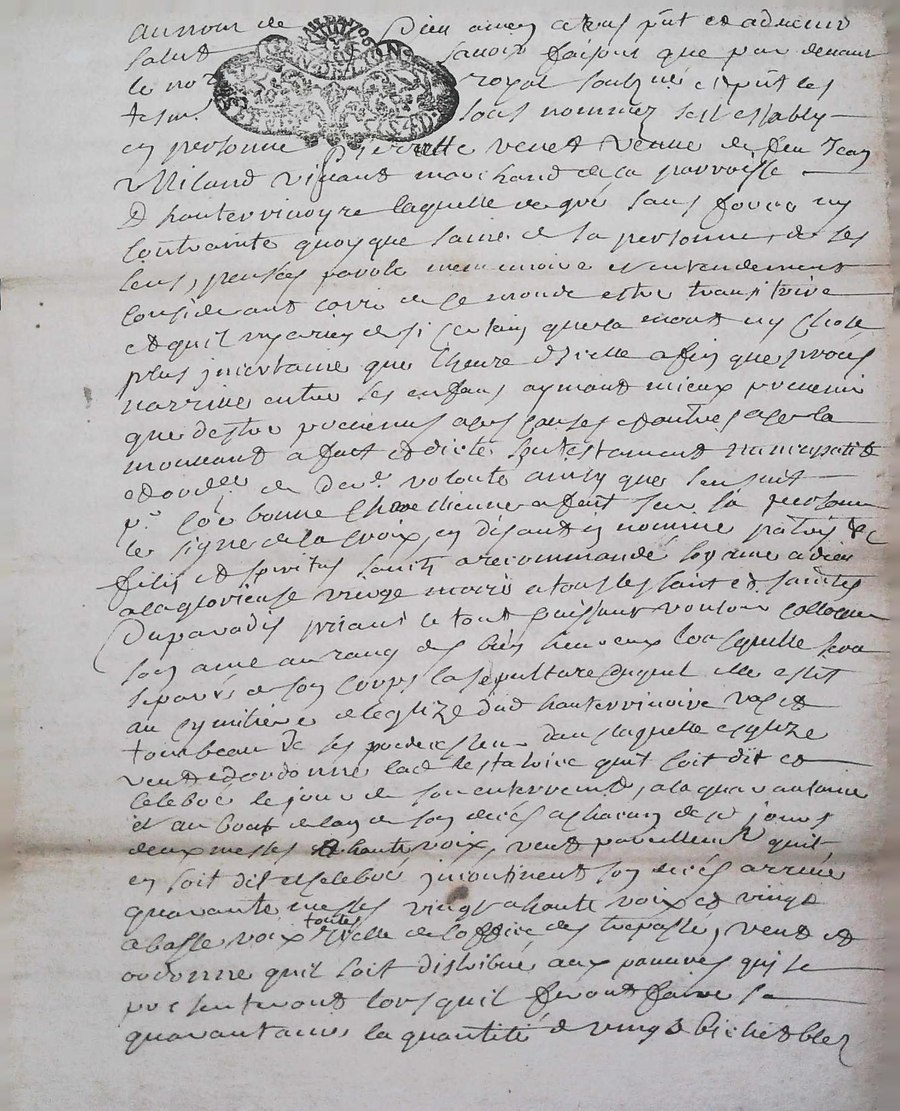 au nom de Dieu amen a tous p̃nt et advenir
salut savoir faisons que par devant
le no.re royal soubz.né et p̃nt les
tesm. sous nommez s'est establye
en personne Pierrette venet veuve de feu Jean
Miland vivant marchand de la parroisse
d hauterrivoyre laquelle de gré sans force ny
contrainte quoyque saine de sa personne, de ses
sens, pensées parole memmoire et entendement
considerant cours de ce monde estre transitoire
et quil ny a rien de si certain que la mort ny chose
plus jncertaine que lheure dicelle afin que procés
narrive entre ses enfans aymant mieux prevenir
que destre prevenus a ces causes et autres a ce la
mouvant a fait et dicté son testament nuncupatif
et ord.re de der.e volonté ainsy que sensuit
p.r coe bonne Chrestienne a fait sur sa personne
le signe de la Croix, en disant in nomine patris &c
filii et spiritus sancti a recommandé son ame a dieu
a la glorieuse vierge marie a tous les saint et saintes
Du paradis priant le tout puissant vouloir colloquer
son ame au rang des bien heureux lors quelle sera
separée de son corps la sepulture duquel elle eslit
au symitiere de leglize dud hauterrivoire vas et
tombeau de ses predecesseur dans laquelle esglize
veut et ordonne lad testatrice quil soit dit et
celebré le jour de son enterrement, a la quarantaine
et au bout de lan de son decés a chacun de ce jours
deux messes a haute voix, veut pareillement quil
en soit dit et celebré jncontinent son decés arrivé
quarante messes vingt a haute voix et vingt
a basse voix toutes jcelle de loffice des trepassé, veut et
ordonne quil soit distribué aux pauvres qui se
presenteront lors quil feront faire sa
quarantaine la quantité de vingt bichet blez